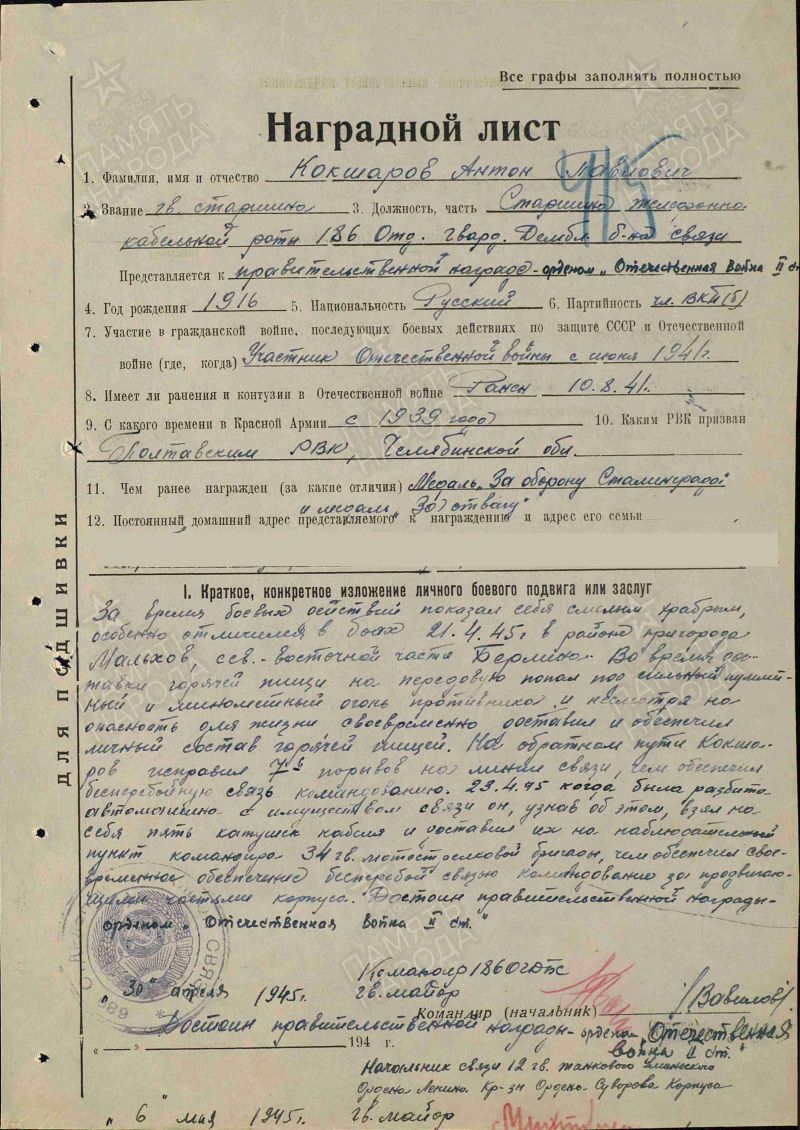 Все графы заполнять полностью
Наградной лист
415
1. Фамилия, имя и отчество Кокшаров Антон Павлович
2. Звание гв. старшина 3. Должность, часть Старшина
кабельной роты 186 Отд. гвард. Дембл. б-на связи
Представляется к правительственной награде - орденом „Отечественная война II ст
4. Год рождения 1916 5. Национальность Русский 6. Партийность чл. ВКП(б)
7. Участие в гражданской войне, последующих боевых действиях по защите СССР и Отечественной
войне (где, когда) Участник Отечественной войны с июня 1941г.
8. Имеет ли ранения и контузии в Отечественной войне Ранен 10.8.41.
9. С какого времени в Красной Армии с 1939 года 10. Каким РВК призван
Полтавским РВК, Челябинской обл.
11. Чем ранее награжден (за какие отличия) Медаль „За оборону Сталинграда"
и медаль „За отвагу"
12. Постоянный домашний адрес представляемого к награждению и адрес его семьи
I. Краткое, конкретное изложение личного боевого подвига или заслуг
За время боевых действий показал себя смелым храбрым,
особенно отличился в боях 21.4.45г в районе пригорода
Мальхов, сев.-восточной части Берлина. Во время дос-
тавки горячей пищи на передовую попал под сильный пулемет-
ный и минометный огонь противника и несмотря на
опасность для жизни своевременно доставил и обеспечил
личный состав горячей пищей. На обратном пути Кокша-
ров исправил 7 порывов на линии связи, чем обеспечил
бесперебойную связь командованию. 23.4.45 когда была разбита
автомашина с имуществом связи он, узнав об этом, взял на
себя пять катушек кабеля и доставил их на наблюдательный
пункт командира 34 гв. мотострелковой бригады, чем обеспечил свое-
временное обеспечение бесперебой связью командование за продвигаю-
щимися частями корпуса. Достоин правительственной награды-
орденом „Отечественная война II ст."
Командир 186 ОГДБС
„30" апреля 1945г. гв. майор
Командир (начальник) /Вавилов/
Достоин правительственной награды - ордена „Отечественная
война II ст."
„ — " 194 г.
Начальник связи 12 гв. танкового Уманьского
Ордена Ленина. Кр-зн Ордена Суворова Корпуса
„6" мая 1945г. гв. майор
ДЛЯ ПОДШИВКИ
ПАМЯТЬ НАРОДА